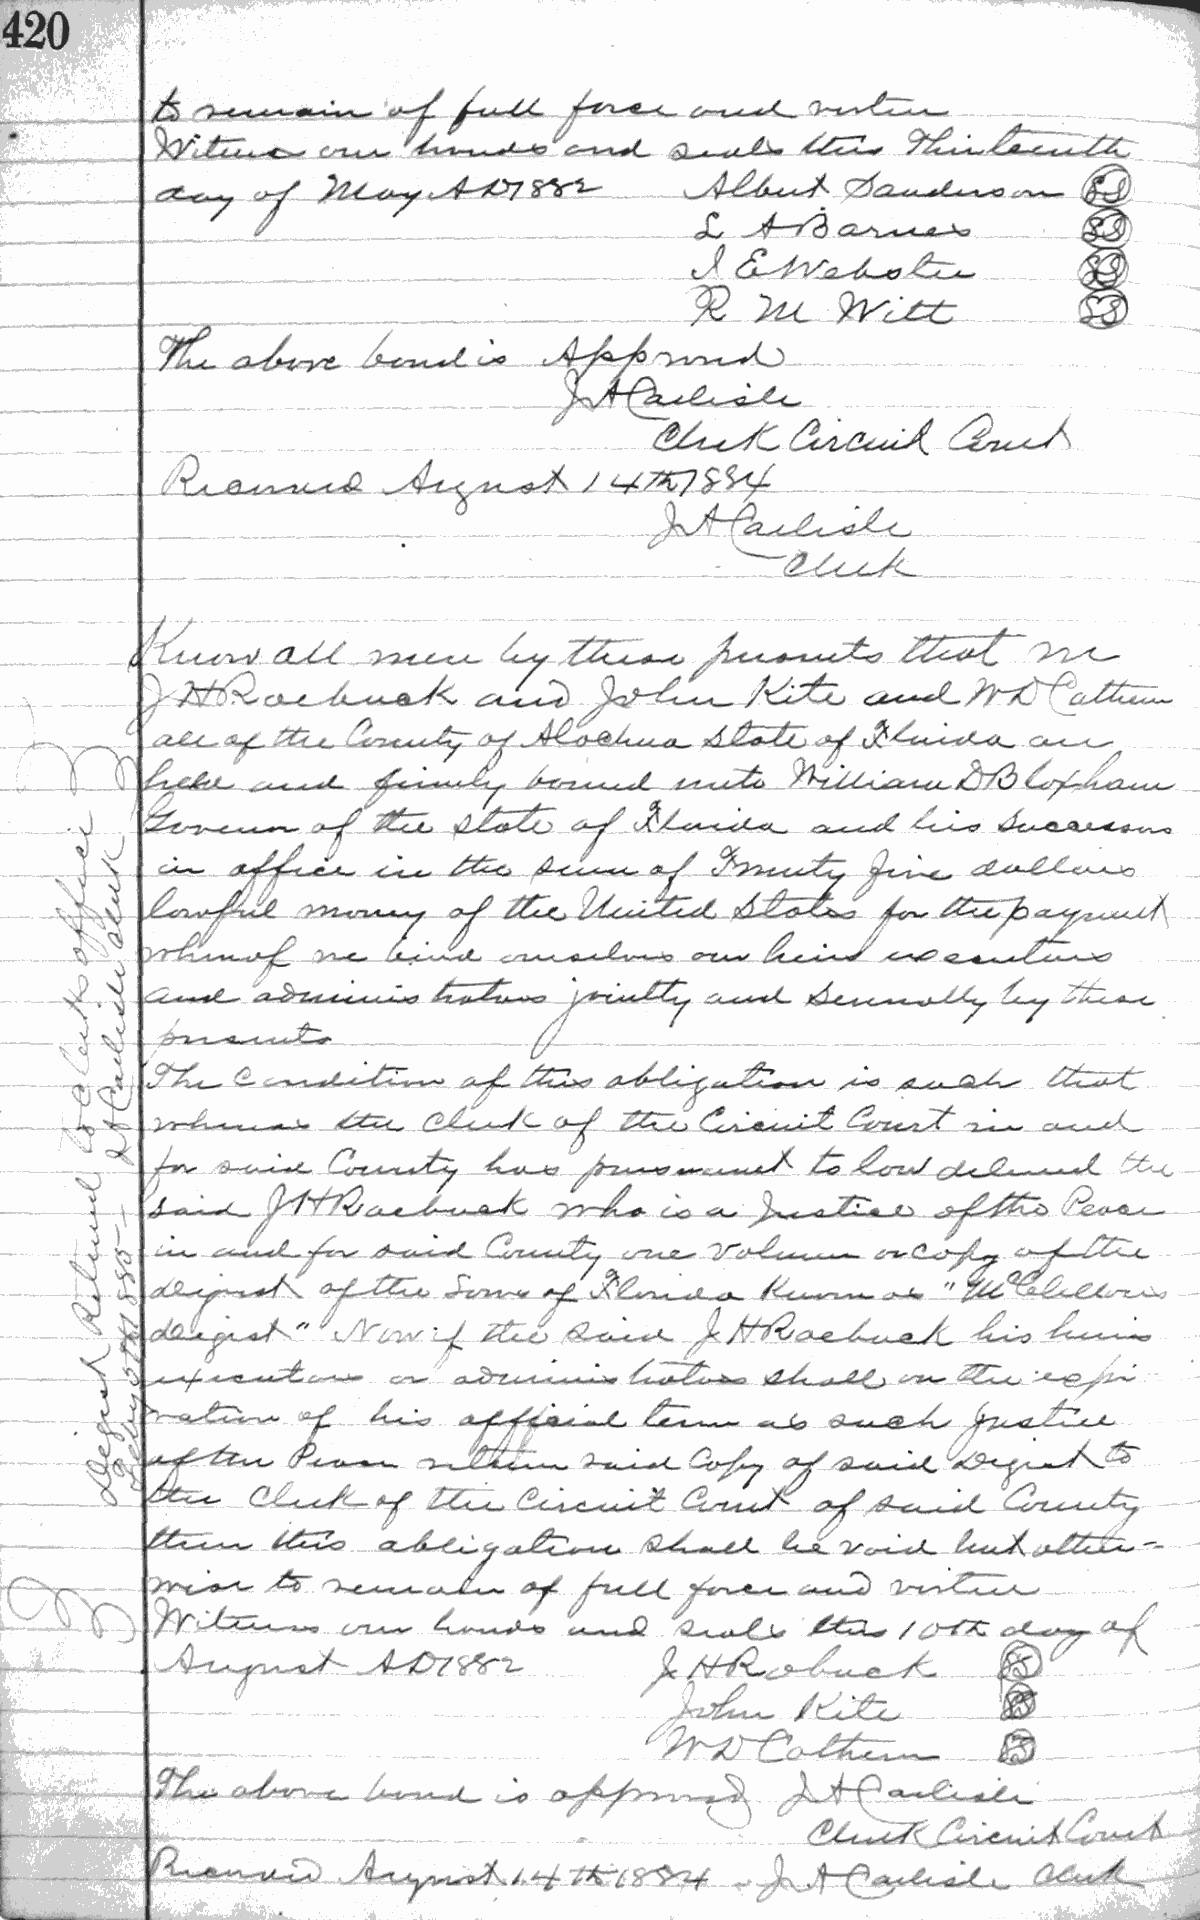 420
to remain of full force and virtue
Witness our hands and seals this Thirteenth
day of May AD 1882 Albert Sanderson LS
L A Barnes LS
I E Webster LS
R M Witt LS
The above bond is Approved
J A Carlisle
Clerk Circuit Court
Received August 14th 1884
J A Carlisle
Clerk
Know all men by these presents that we
J H Roebuck and John Kite and W D Cathern
all of the County of Alachua State of Florida are
held and firmly bound unto William D Bloxham
Governor of the State of Florida and his successors
in office in the sum of Twenty five dollars
lawful money of the United States for the payment
whereof we bind ourselves our heirs executors
and administrators jointly and severally by these
presents
The condition of this obligation is such that
whereas the Clerk of the Circuit Court in and
for said County has pursuant to law delivered the
said J H Roebuck who is a Justice of the Peace
in and for said County one volume or copy of the
digest of the Laws of Florida Known as "McClellans
digest" Now if the said J H Roebuck his heirs
executors or administrators shall on the expi
ration of his official term as such Justice
of the Peace return said Copy of said Digest to
the Clerk of the Circuit Court of said County
then this obligation shall be void but other-
wise to remain of full force and virtue
Witness our hands and seals this 10th day of
August AD 1882 J H Robuck LS
John Kite LS
W D Cathern LS
The above bond is approved J A Carlisle
Clerk Circuit Court
Received August 14th 1884 - J A Carlisle Clerk
Digest Returned to clerks office
1885 - J A Carlisle clerk